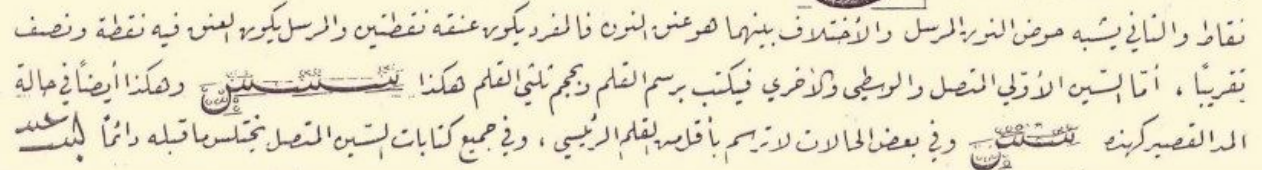 نقاط والثاني يشبه حوض النون المرسل والأختلاف بينهما هو عنق النون فالمفرد يكون عنقه نقطتين والمرسل يكون العنق فيه نقطة ونصف
تقريبًا ، أمّا السين الأوّلي المتصل والوسطى والأخرى فيكتب برسم القلم وبحجم ثلثي القلم هكذا وهكذا أيضاً في حالة
المد القصير كهذه وفي بعض الحالات لا ترسم بأقل من القلم الرئيسي ، وفي جميع كتابات السين المتصل يختلس ما قبله دائماً